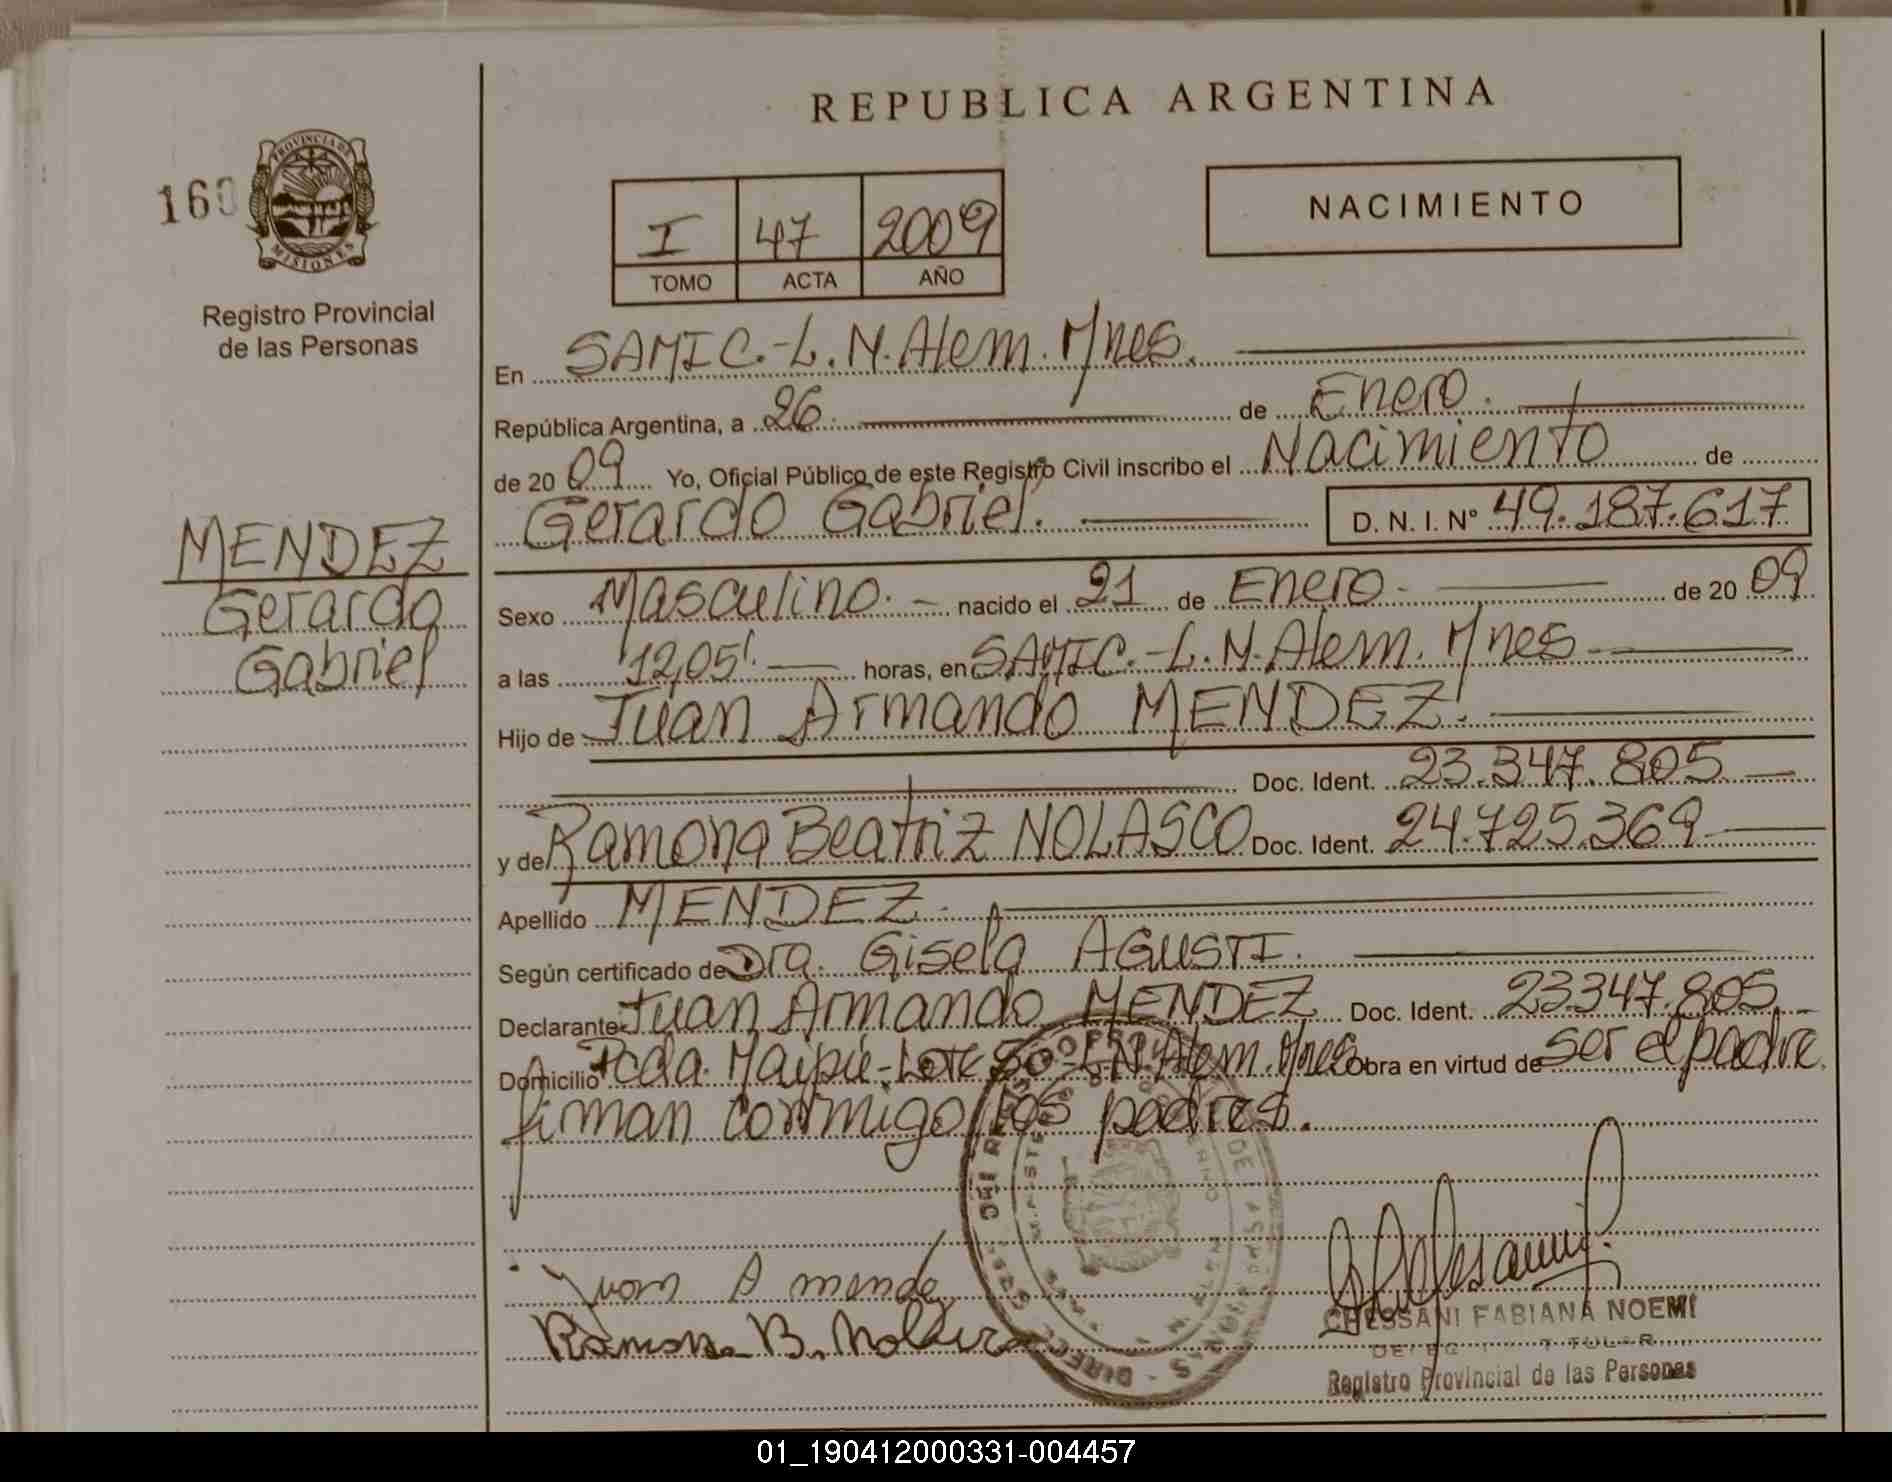 REPUBLICA ARGENTINA
160
PROVINCIA DE
MISIONES
Registro Provincial
de las Personas
I 47 2009
TOMO ACTA AÑO
NACIMIENTO
En SAMIC.-L.N.Alem. Mnes.
República Argentina, a 26. de Enero.
de 2009 Yo, Oficial Público de este Registro Civil inscribo el Nacimiento de
Gerardo Gabriel. D. N. I. Nº 49.187.617
MENDEZ
Gerardo
Gabriel
Sexo Masculino.- nacido el 21 de Enero- de 2009
a las 12,05'. horas, en SAMIC.-L.N.Alem. Mnes
Hijo de Juan Armando MENDEZ.
Doc. Ident. 23.347.805
y de Ramona Beatriz NOLASCO Doc. Ident. 24.725.369
Apellido MENDEZ.
Según certificado de Dra. Gisela AGUSTI.
Declarante Juan Armando MENDEZ Doc. Ident. 23.347.805
Domicilio Pcda. Maipú-Lote 50-L.N.Alem.Mnes Obra en virtud de ser el padre
firman conmigo los padres.
Juan A mende
Ramona B. Nolasco
CHESSANI FABIANA NOEMI
Registro Provincial de las Personas
01_190412000331-004457